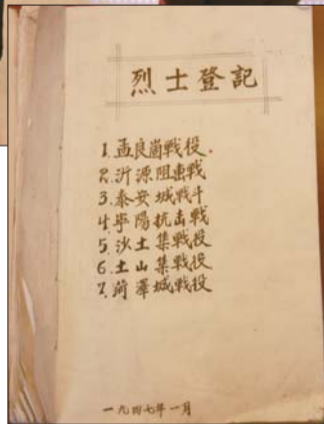 烈士登記
1.孟良崮戰役.
2.沂源阻击戰
3.泰安城戰斗
4.寧陽抗击戰
5.沙土集戰役
6.土山集戰役
7.菏澤城戰役
一九四七年一月